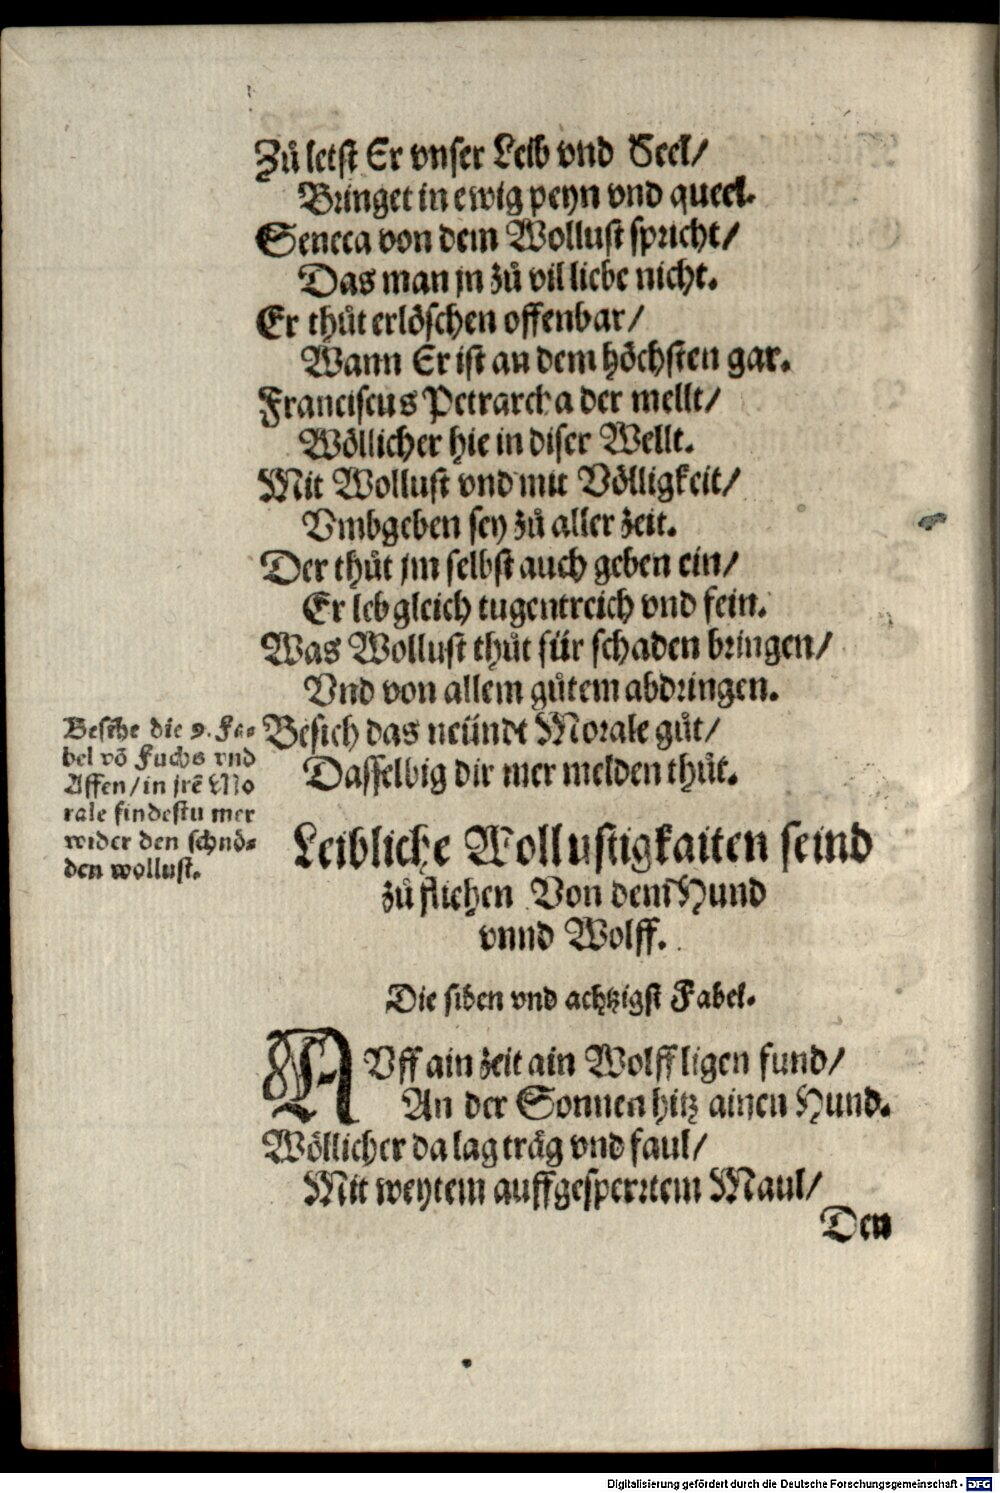 Zů letst Er vnser Leib vnd Seel/
Bringet in ewig peyn vnd queel.
Seneca von dem Wollust spricht/
Das man jn zů vil liebe nicht.
Er thůt erlöschen offenbar/
Wann Er ist an dem höchsten gar.
Franciscus Petrarcha der mellt/
Wöllicher hie in diser Wellt.
Mit Wollust vnd mit Völligkeit/
Vmbgeben sey zů aller zeit.
Der thůt jm selbst auch geben ein/
Er leb gleich tugentreich vnd fein.
Was Wollust thůt für schaden bringen/
Vnd von allem gůtem abdringen.
Besich das neündt Morale gůt/
Dasselbig dir mer melden thůt.
Besihe die 9. Fa-
bel võ Fuchs vnd
Affen/in jrẽ Mo
rale findestu mer
wider den schnö-
den wollust.
Leibliche Wollustigkaiten seind
zů fliehen Von dem Hund
vnnd Wolff.
Die siben vnd achtzigst Fabel.
AVff ain zeit ain Wolff ligen fund/
An der Sonnen hitz ainen Hund.
Wöllicher da lag träg vnd faul/
Mit weytem auffgesperrtem Maul/
Den
Digitalisierung gefördert durch die Deutsche Forschungsgemeinschaft - DFG